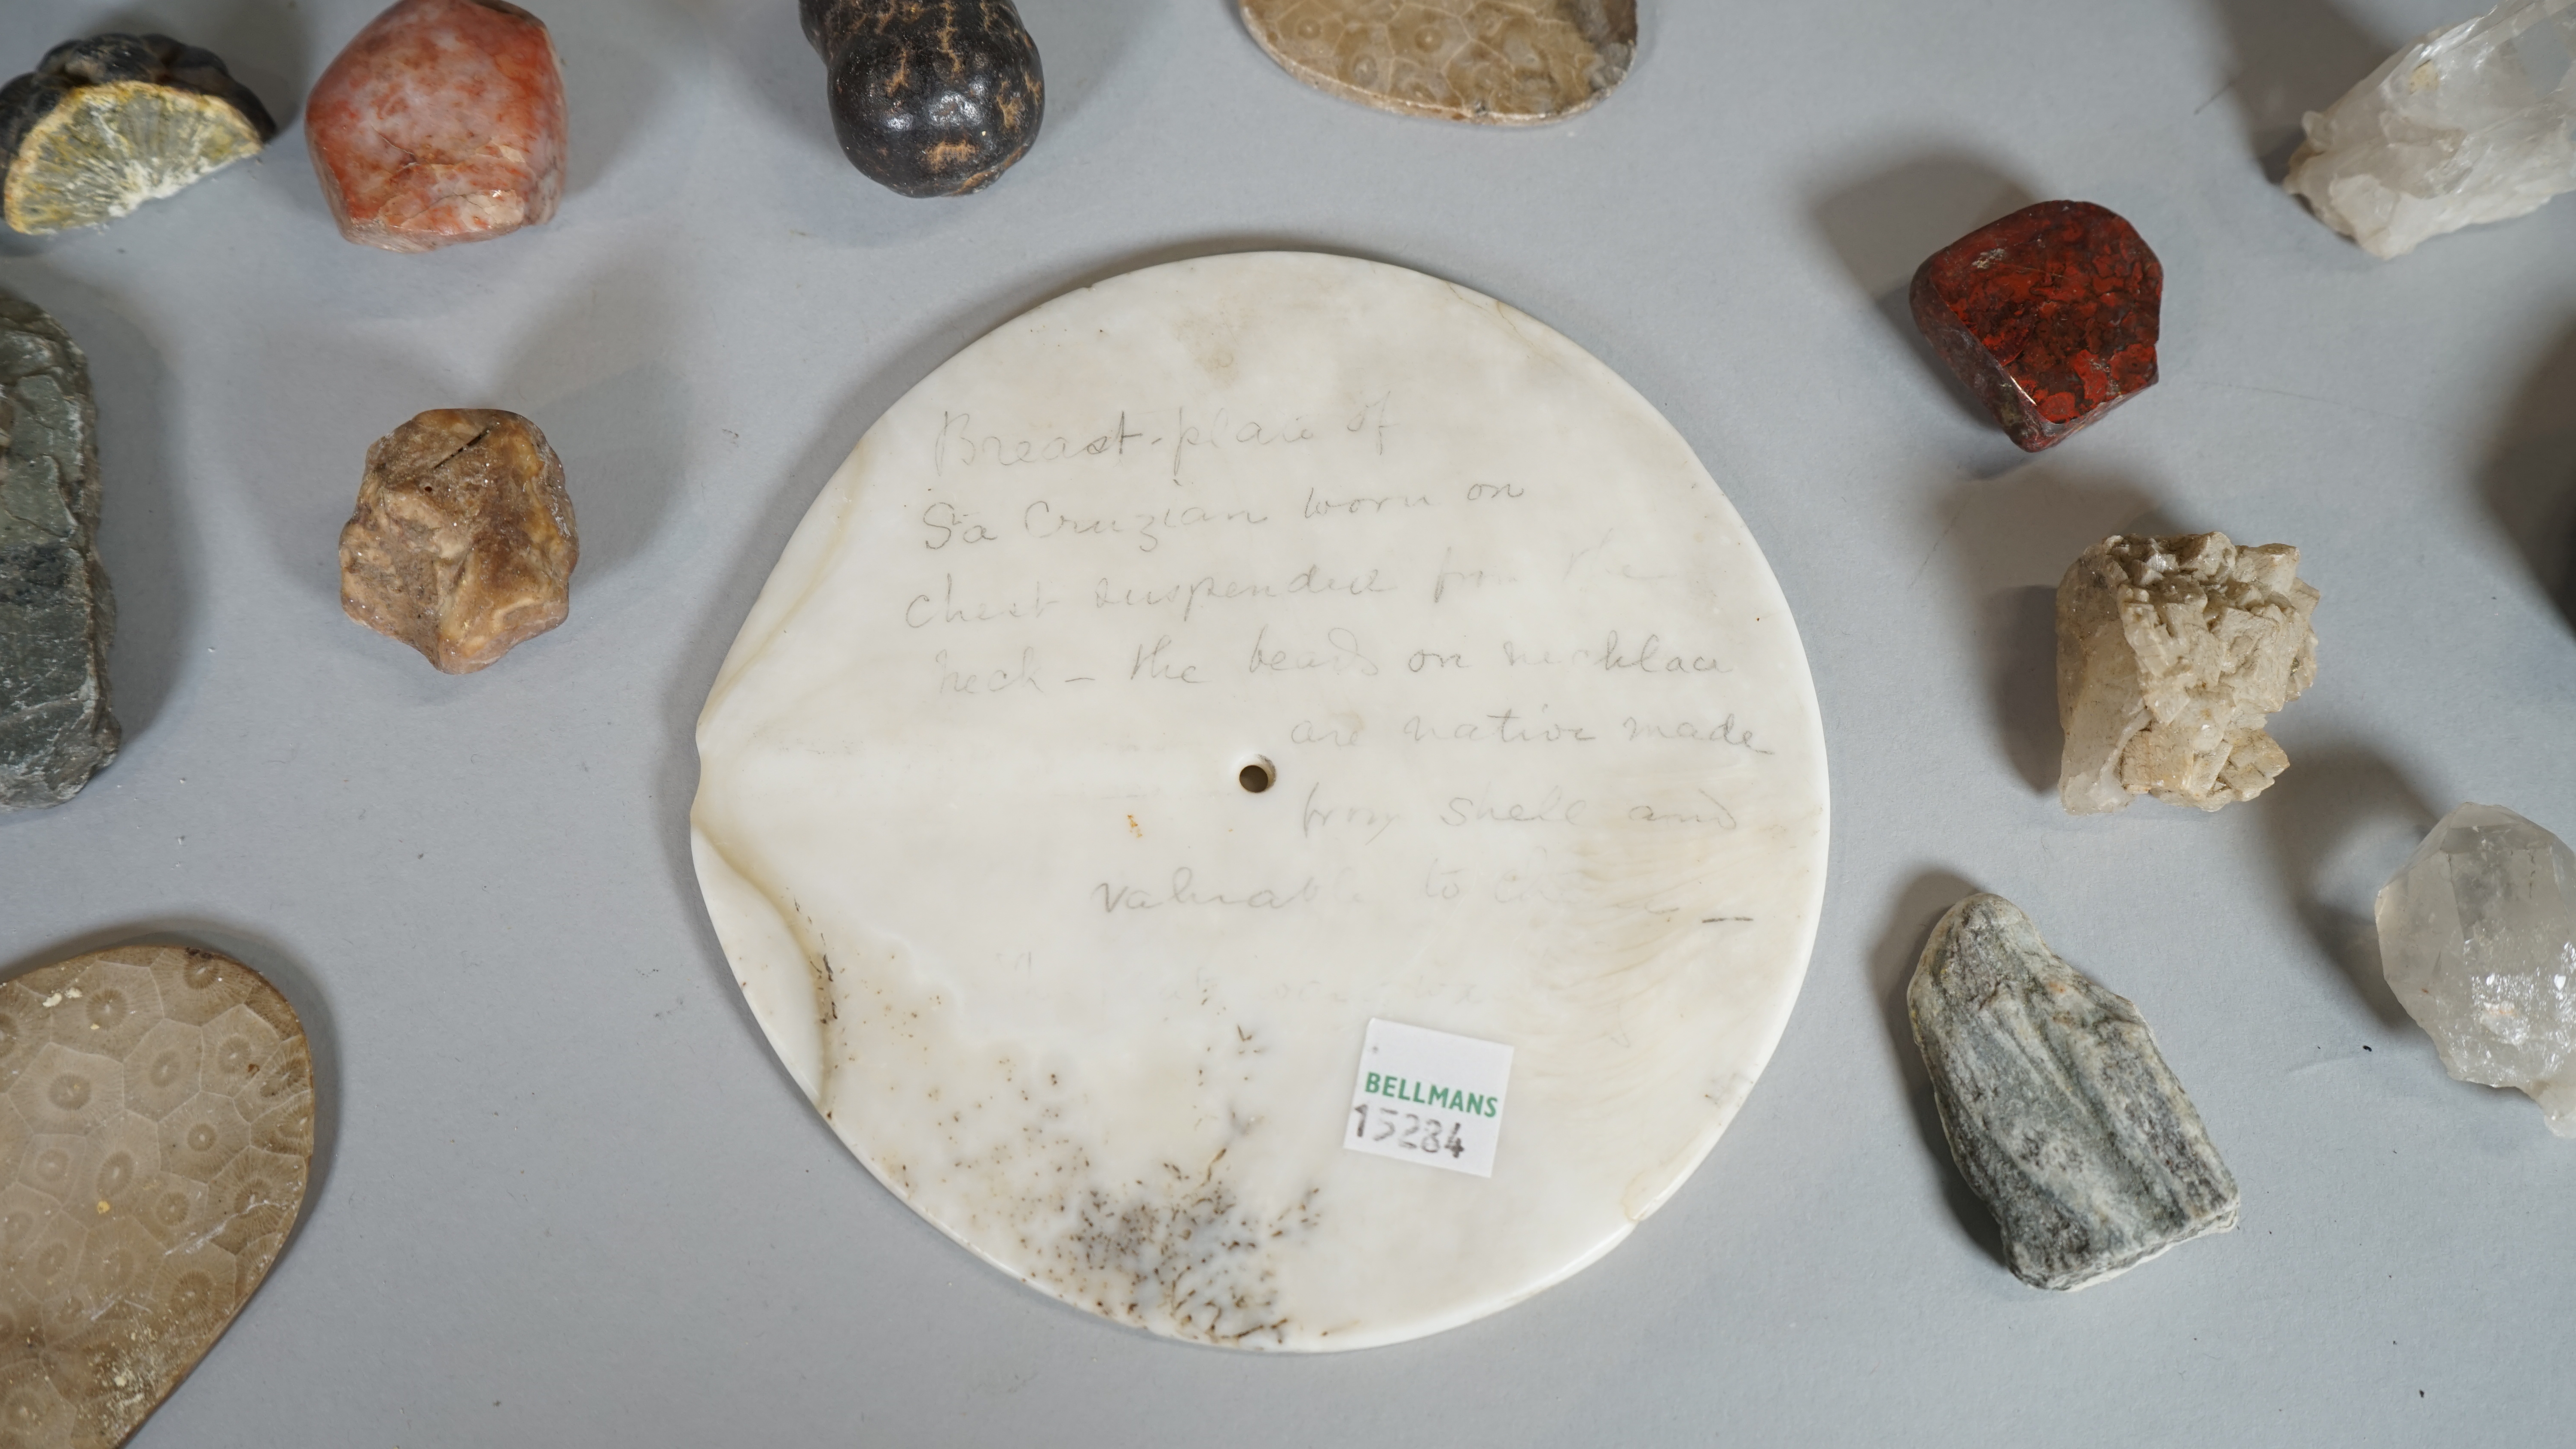 Breast-plate of
Sta Cruzian worn on
chest suspended from the
neck – the beads on necklace
are native made
from shell and
valuable to
BELLMANS
15284